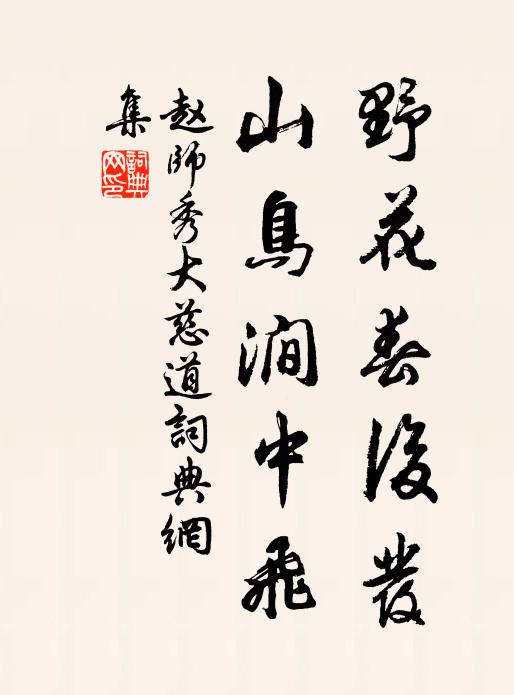 野花春後發
山鳥澗中飛
赵師秀大慈道詞典網
集
詞典網印